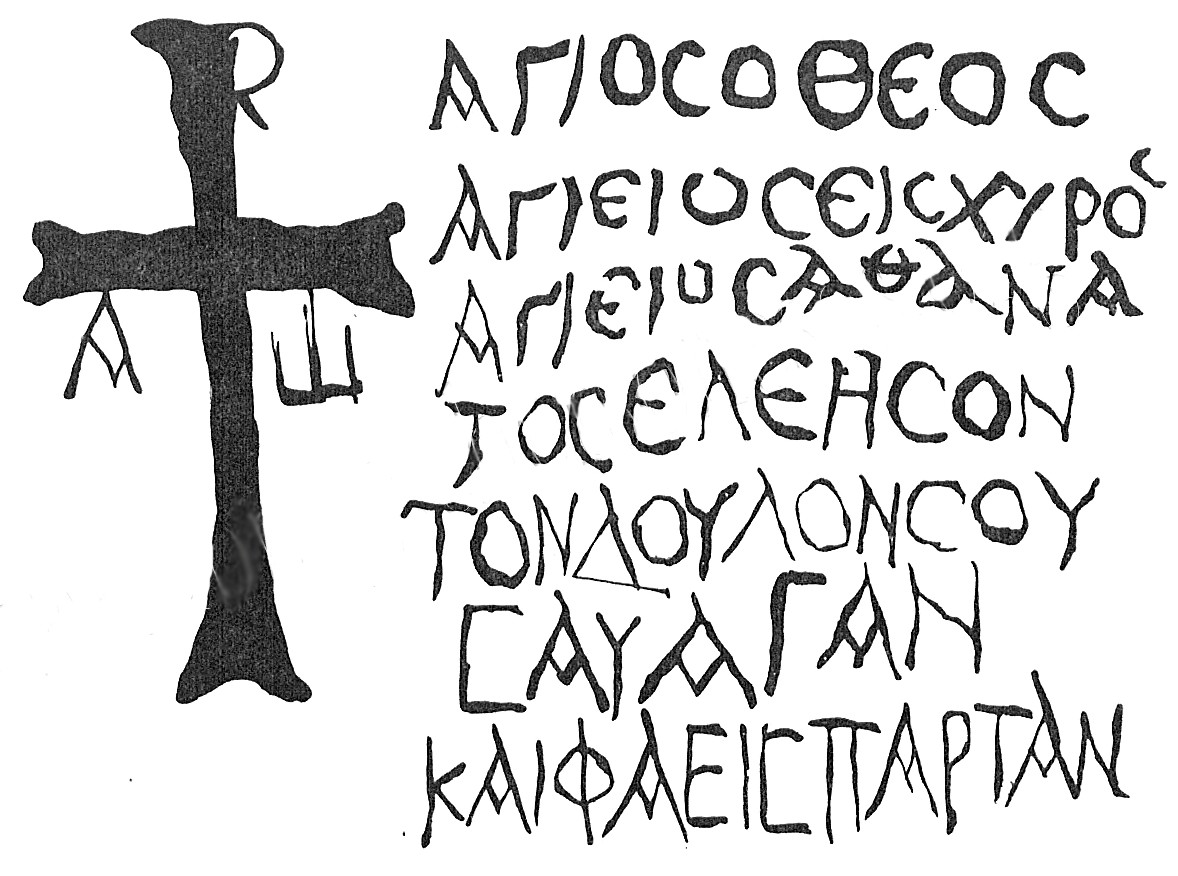 Ρ
Α Ω
ΑΓΙΟϹΟΘΕΟϹ
ΑΓΙΕΙΟϹΕΙϹΧΥΡΟϹ
ΑΓΙΕΙΟϹΑΘΑΝΑ
ΤΟϹΕΛΕΗϹΟΝ
ΤΟΝΔΟΥΛΟΝϹΟΥ
ϹΑΥΑΓΑΝ
ΚΑΙΦΑΕΙϹΠΑΡΤΑΝ